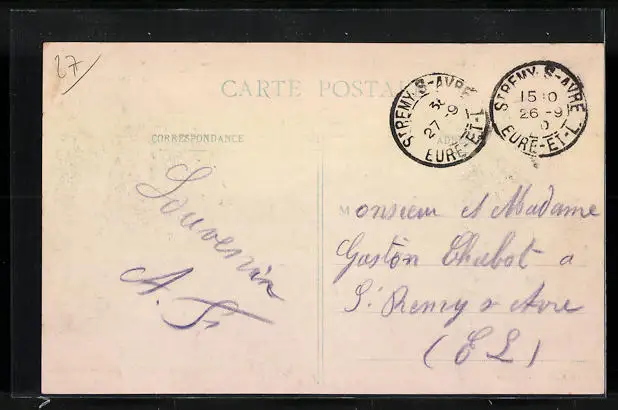 27
CARTE POSTALE
ST REMY-S-AVRE
27 -9
EURE-ET-L
ST REMY-S-AVRE
15 0
26 -9
EURE-ET-L
CORRESPONDANCE
Souvenir
Monsieur et Madame
Gaston Chabot a
St Remy s Avre
(E L)